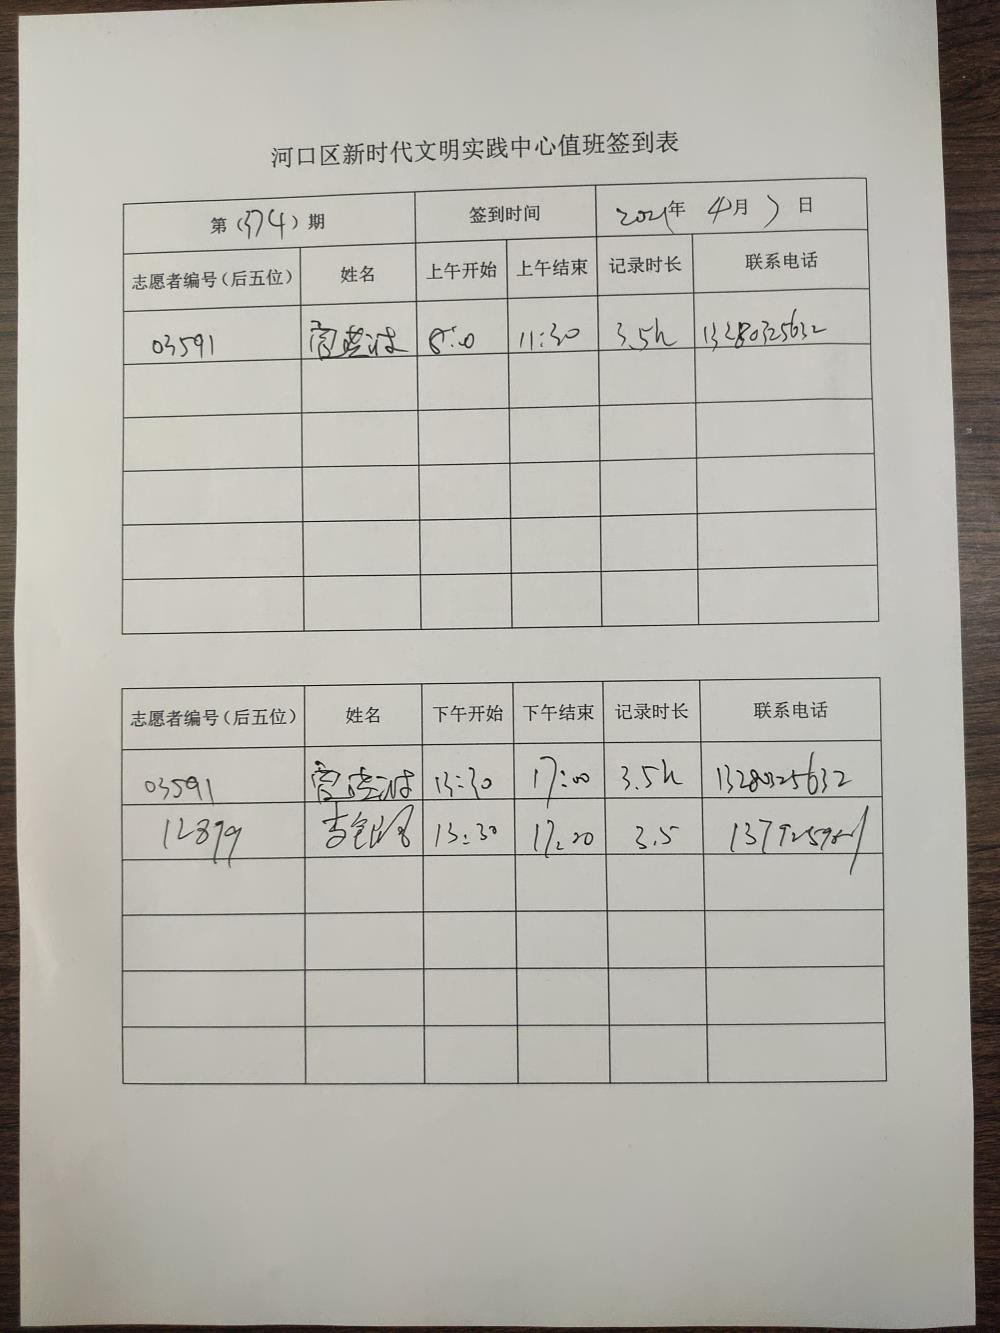 河口区新时代文明实践中心值班签到表
第（374）期 签到时间 2021年 4月 7日
志愿者编号（后五位） 姓名 上午开始 上午结束 记录时长 联系电话
03591 8:00 11:30 3.5h 13280325632
志愿者编号（后五位） 姓名 下午开始 下午结束 记录时长 联系电话
03591 13:30 17:00 3.5h 13280325632
12879 13:30 17:00 3.5